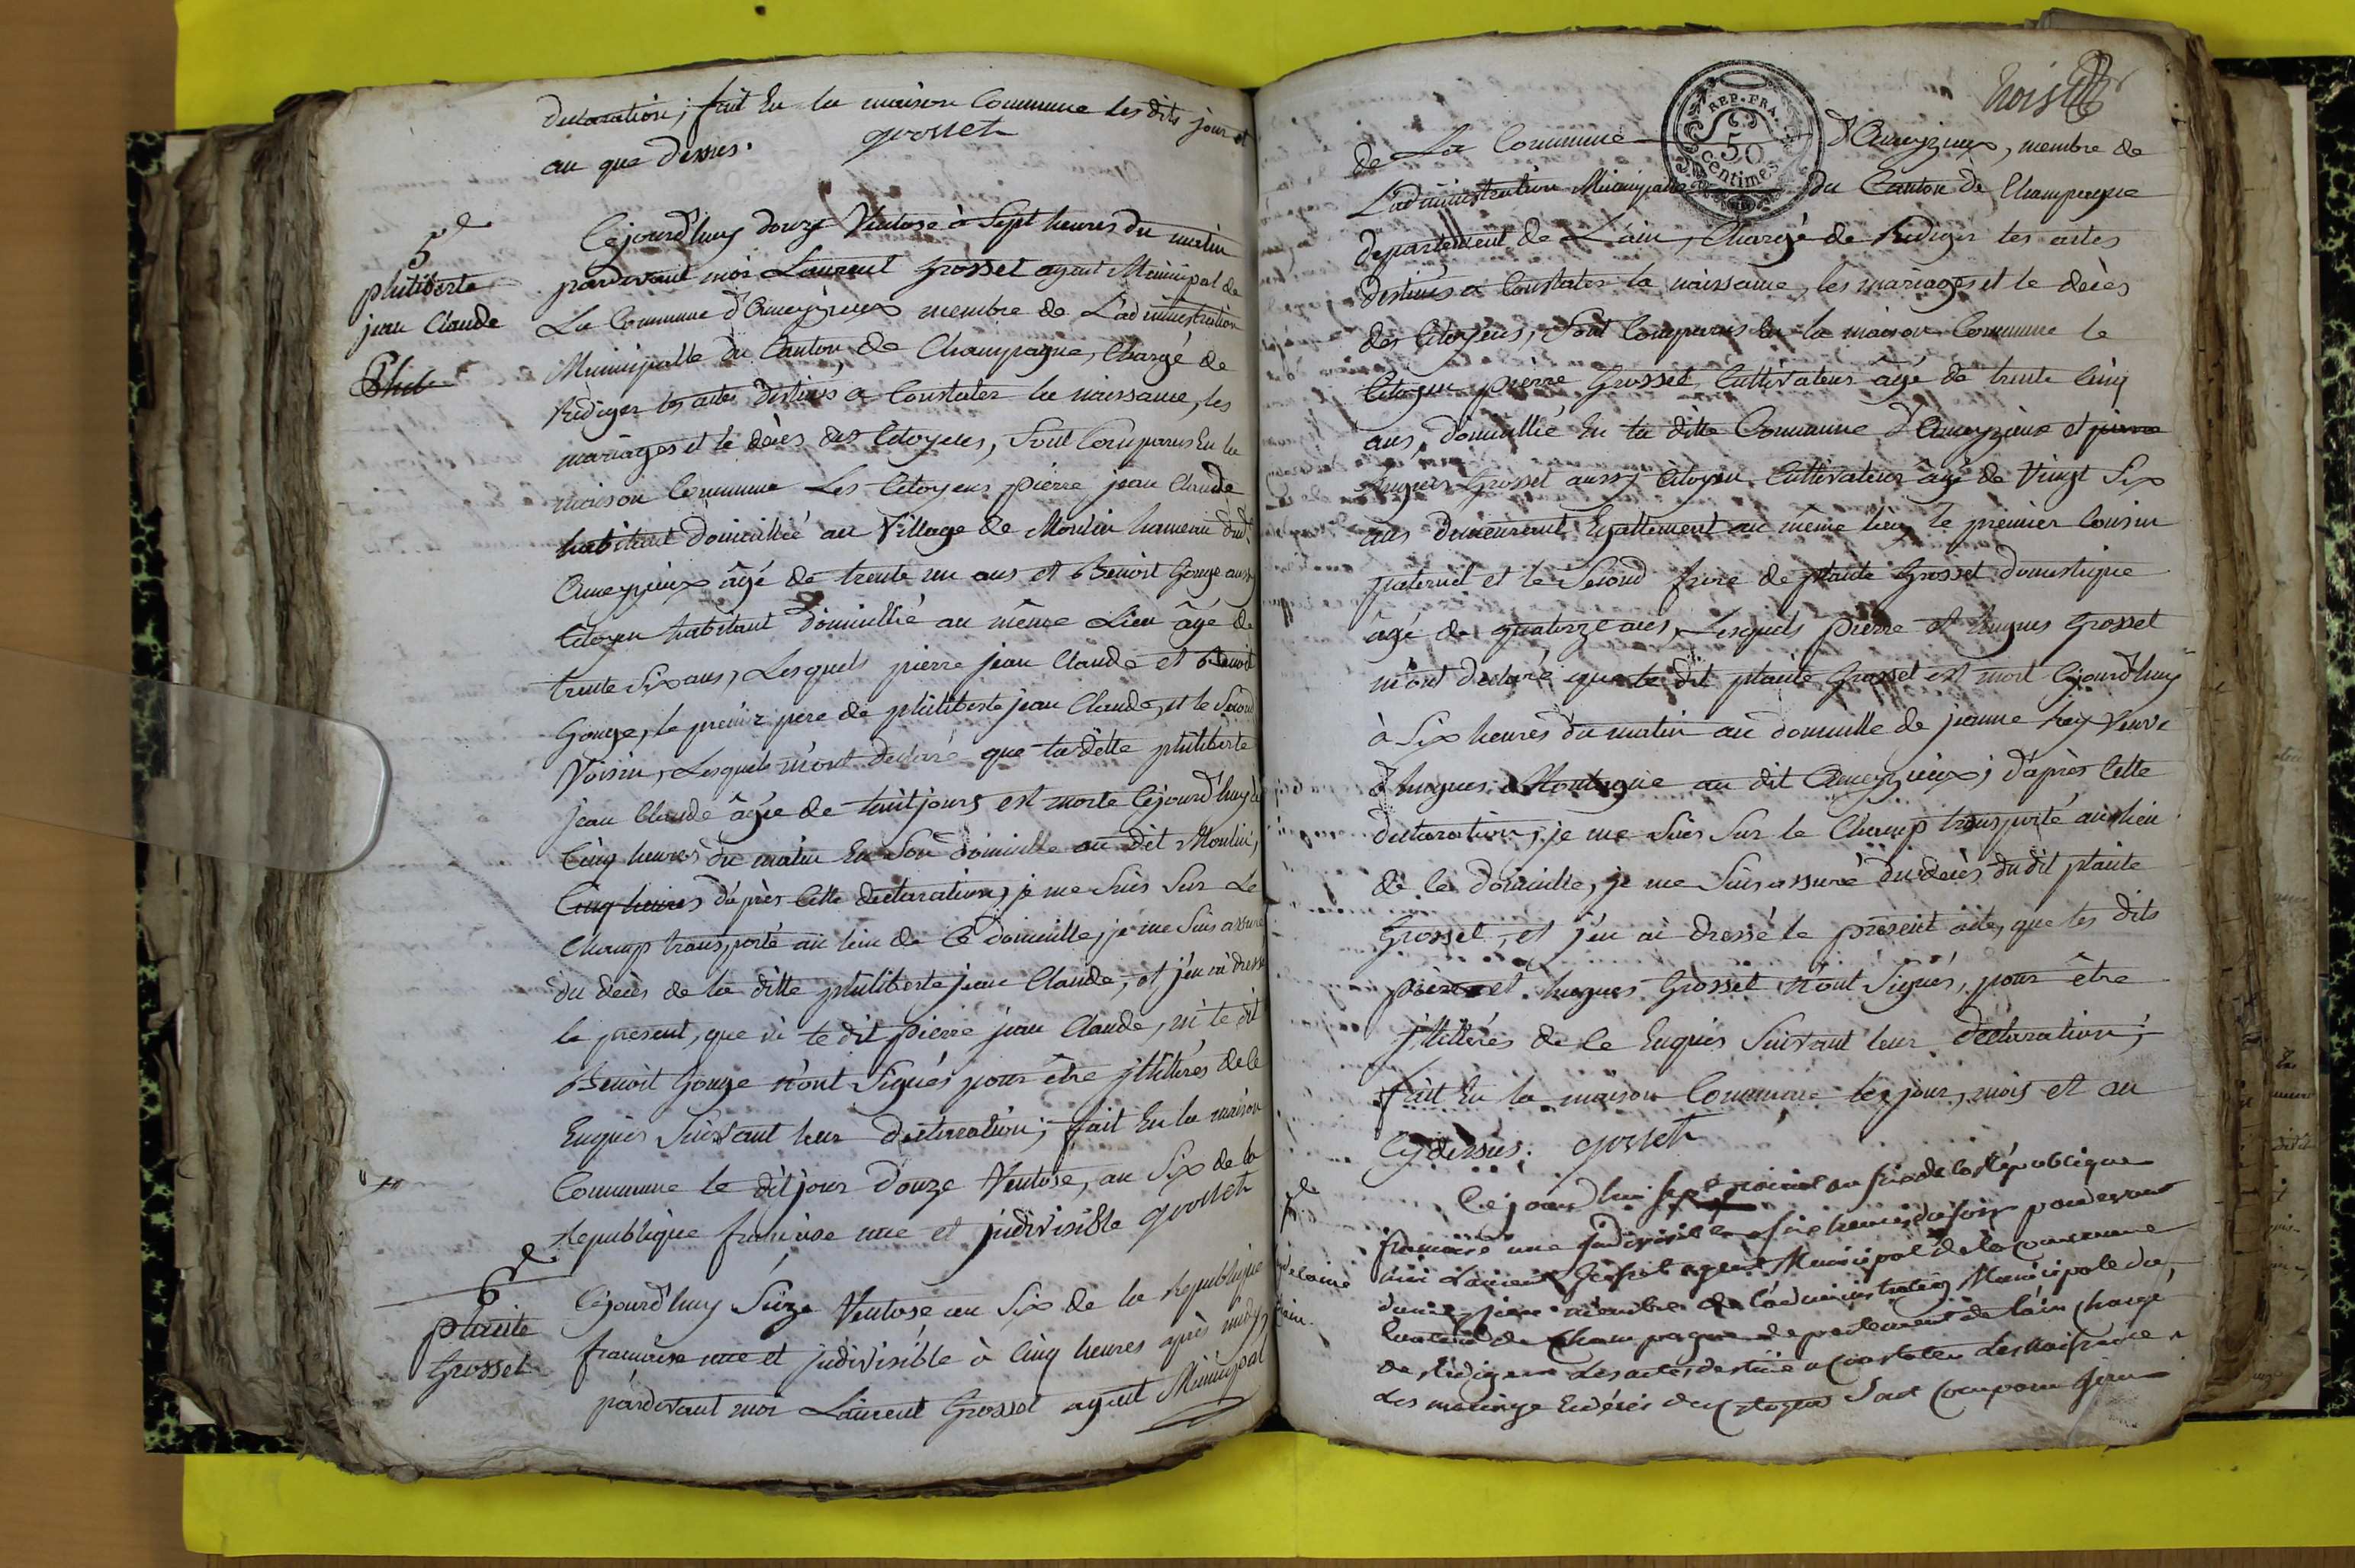 declaration; fait En la maison Commune les dits jour et
an que dessus. grosset
5e
philiberte
jean Claude
Phil
Cejourd'huy douze Ventose à Sept heures du matin
pardevant moi Laurent Grosset agent Municipal de
La Commune d'Ameyzieux membre de L'administration
Municipalle du Canton de Champagne, Chargé de
Rediger les actes destinés a Constater la naissance, les
mariages et le décès des Citoyens, Sont Comparus En la
maison Commune Les Citoyens pierre jean Claude
habitant domicillié au Village de Moulin hameau dud.
Ameyzieux âgé de trente un ans et Benoit Gouge aussy
Citoyen habitant domicillié au même Lieu âgé de
trente Six ans, Lesquels pierre jean Claude et Benoit
Gouge, le premier pere de philiberte jean Claude, et le Second
Voisin, Lesquels m'ont declaré que la ditte philiberte
jean Claude âgée de huit jours est morte Cejourd'huy à
Cinq heures du matin En Son domicille au dit Moulin,
Cinq heures d'après Cette declaration, je me Suis Sur Le
Champ transporté au lieu de Ce domicille, je me Suis assuré
du décès de la ditte philiberte jean Claude, et j'en ai dressé
le présent, que ni le dit pierre jean Claude, ni le dit
Benoit Gouge n'ont Signés pour être jllitérés de le
Enquis Suivant leur declaration; fait En la maison
Commune le dit jour Douze Ventose, an Six de la
Republique francaise une et jndivisible grosset
6e
plaite
Grosset
Cejourd'huy Sieze Ventose an Six de la Republique
francaise une et jndivisible à Cinq heures après midy,
pardevant moi Laurent Grosset agent Municipal
REP. FRA.
50
Centimes
trois
de La Commune d'Ameyzieux, membre de
L'administration Municipalle du Canton de Champagne
departement de L'ain, Chargé de Rediger les actes
destinés a Constater la naissance, les mariages et le décès
des Citoyens, Sont Comparus En la maison Commune le
Citoyen pierre Grosset Cultivateur âgé de trente Cinq
ans, domicillié En la ditte Commune d'Ameyzieux et pierre
hugues Grosset aussy Citoyen Cultivateur âgé de Vingt Six
ans demeurant Egallement au même lieu, le premier Cousin
paternel et le Second frere de plaite Grosset domestique
âgé de quatorze ans, Lesquels pierre et hugues Grosset
m'ont declaré que le dit plaite Grosset est mort Cejourd'huy
à Six heures du matin au domicille de jeanne hey Veuve
d'hugues Montagne au dit Ameyzieux; d'après Cette
declaration, je me Suis Sur le Champ transporté au lieu
de Ce domicille, je me Suis assuré du décès du dit plaite
Grosset, et j'en ai dressé le présent acte, que les dits
pierre et hugues Grosset n'ont Signés, pour être
jllitérés de le Enquis Suivant leur declaration;
fait En la maison Commune les jour, mois et an
Cy dessus. grosset
7e
Cejourd hui sept an six de la République
francaise une jndivisible a six heures du soir pardevant
moi Laurent Grosset agent Municipal de la commune
dameyzieu membre de l'administration Municipale du
Canton de Champagne departement de lain charge
de Rédiger Les actes destiné a Constater Les naissance
Les mariage Endécès des Citoyen Sont Comparu